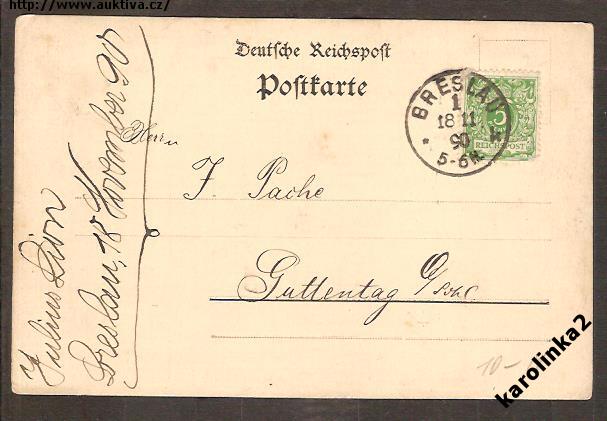 http://www.auktiva.cz/
Deutsche Reichspost
Postkarte
BRESLAU
1
18 11
90
5-6N.
5
REICHSPOST
Herrn
F. Pache
Guttentag O/Schl.
Julius Lion
Breslau, 18 November 90
10-
karolinka2